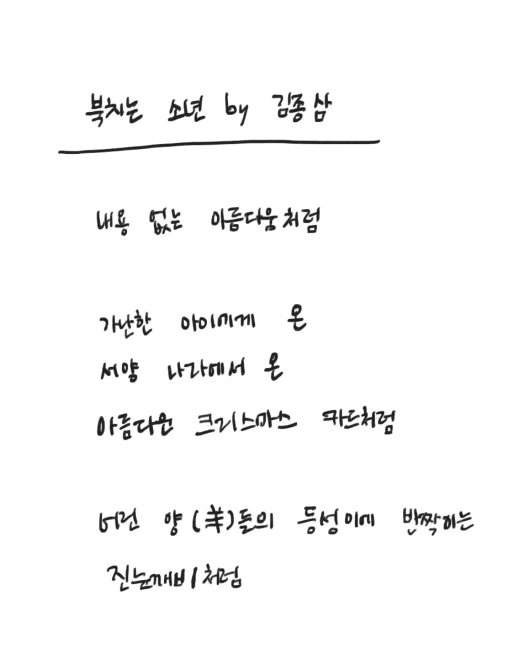 북치는 소년 by 김종삼
내용 없는 아름다움처럼
가난한 아이에게 온
서양 나라에서 온
아름다운 크리스마스 카드처럼
어린 양(羊)들의 등성이에 반짝이는
진눈깨비처럼